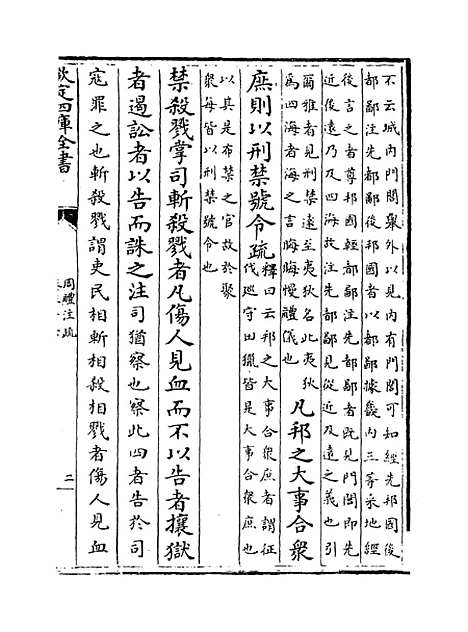 不云城内門閭舉外以見内有門閭可知經先邦國後
都鄙注先都鄙後邦國者以都鄙據畿内三等采地經
後言之者尊邦國輕都鄙注先都鄙者既見門閭即先
近後遠乃及四海故注先都鄙見從近及遠之義也引
爾雅者見刑禁遠至夷狄名此夷狄
為四海者海之言晦晦慢禮儀也
凡邦之大事合衆
庶則以刑禁號令疏
釋曰云邦之大事合衆庶者謂征
伐巡守田獵皆是大事合衆庶也
以其是布禁之官故於聚
衆每皆以刑禁號令也
禁殺戮掌司斬殺戮者凡傷人見血而不以告者攘獄
者遏訟者以告而誅之注司猶察也察此四者告於司
寇罪之也斬殺戮謂吏民相斬相殺相戮者傷人見血
欽定四庫全書
周禮注疏
二